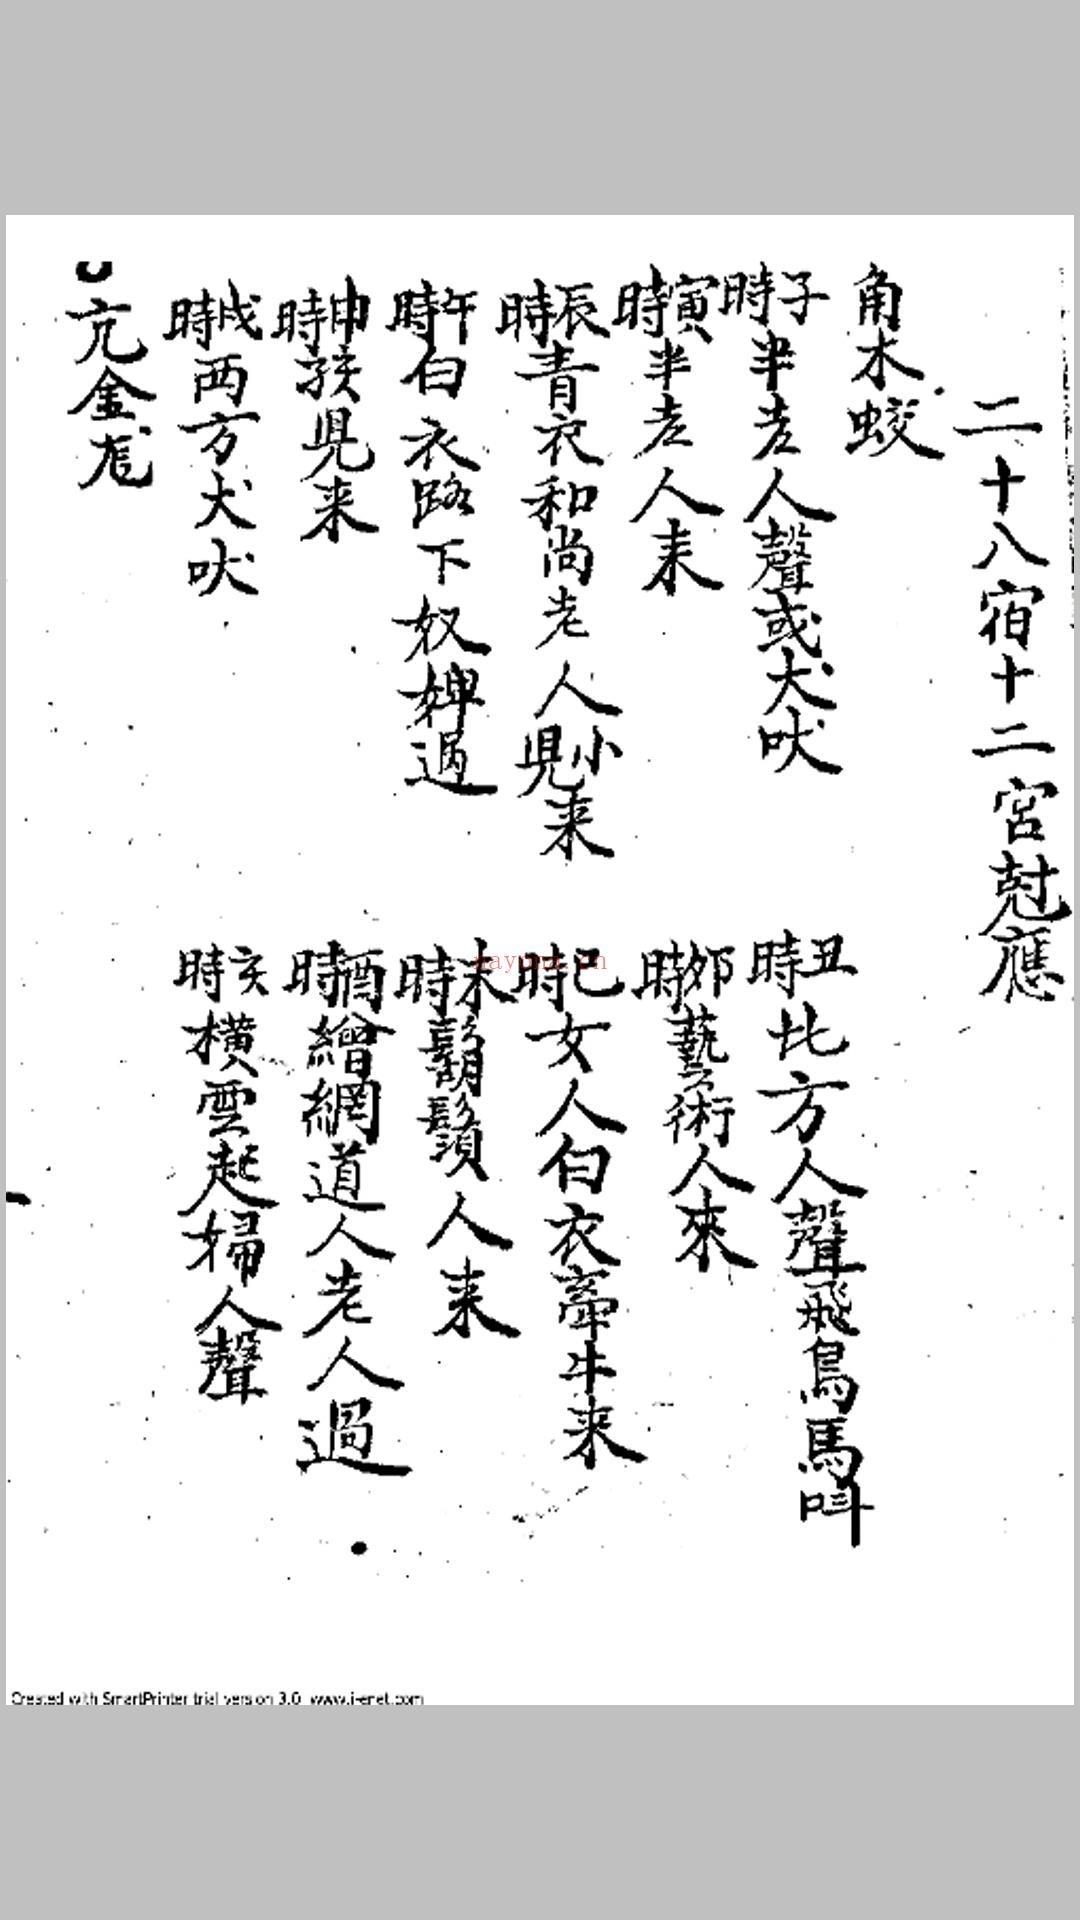 二十八宿十二宮尅應
角木蛟
子時半老人聲或犬吠
丑時北方人聲飛鳥馬叫
寅時半老人来
夘時藝術人來
辰時青衣和尚老人小児来
巳時女人白衣牽牛来
午時白衣路下奴婢過
未時鬍鬚人来
申時孩児来
酉時繒網道人老人過
戌時両方犬吠
亥時橫雲起婦人聲
亢金
nayona.cn
Created with SmartPrinter trial version 3.0 www.i-enet.com